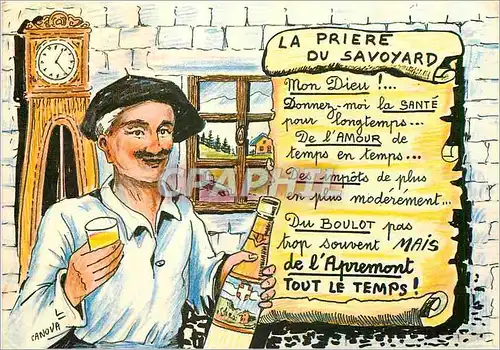 LA PRIERE
DU SAVOYARD
Mon Dieu !...
Donnez-moi la SANTÉ
pour longtemps...
De l'AMOUR de
temps en temps...
Des impôts de plus
en plus modérément...
Du BOULOT pas
trop souvent MAIS
de l'Apremont
TOUT LE TEMPS !
CANOVA